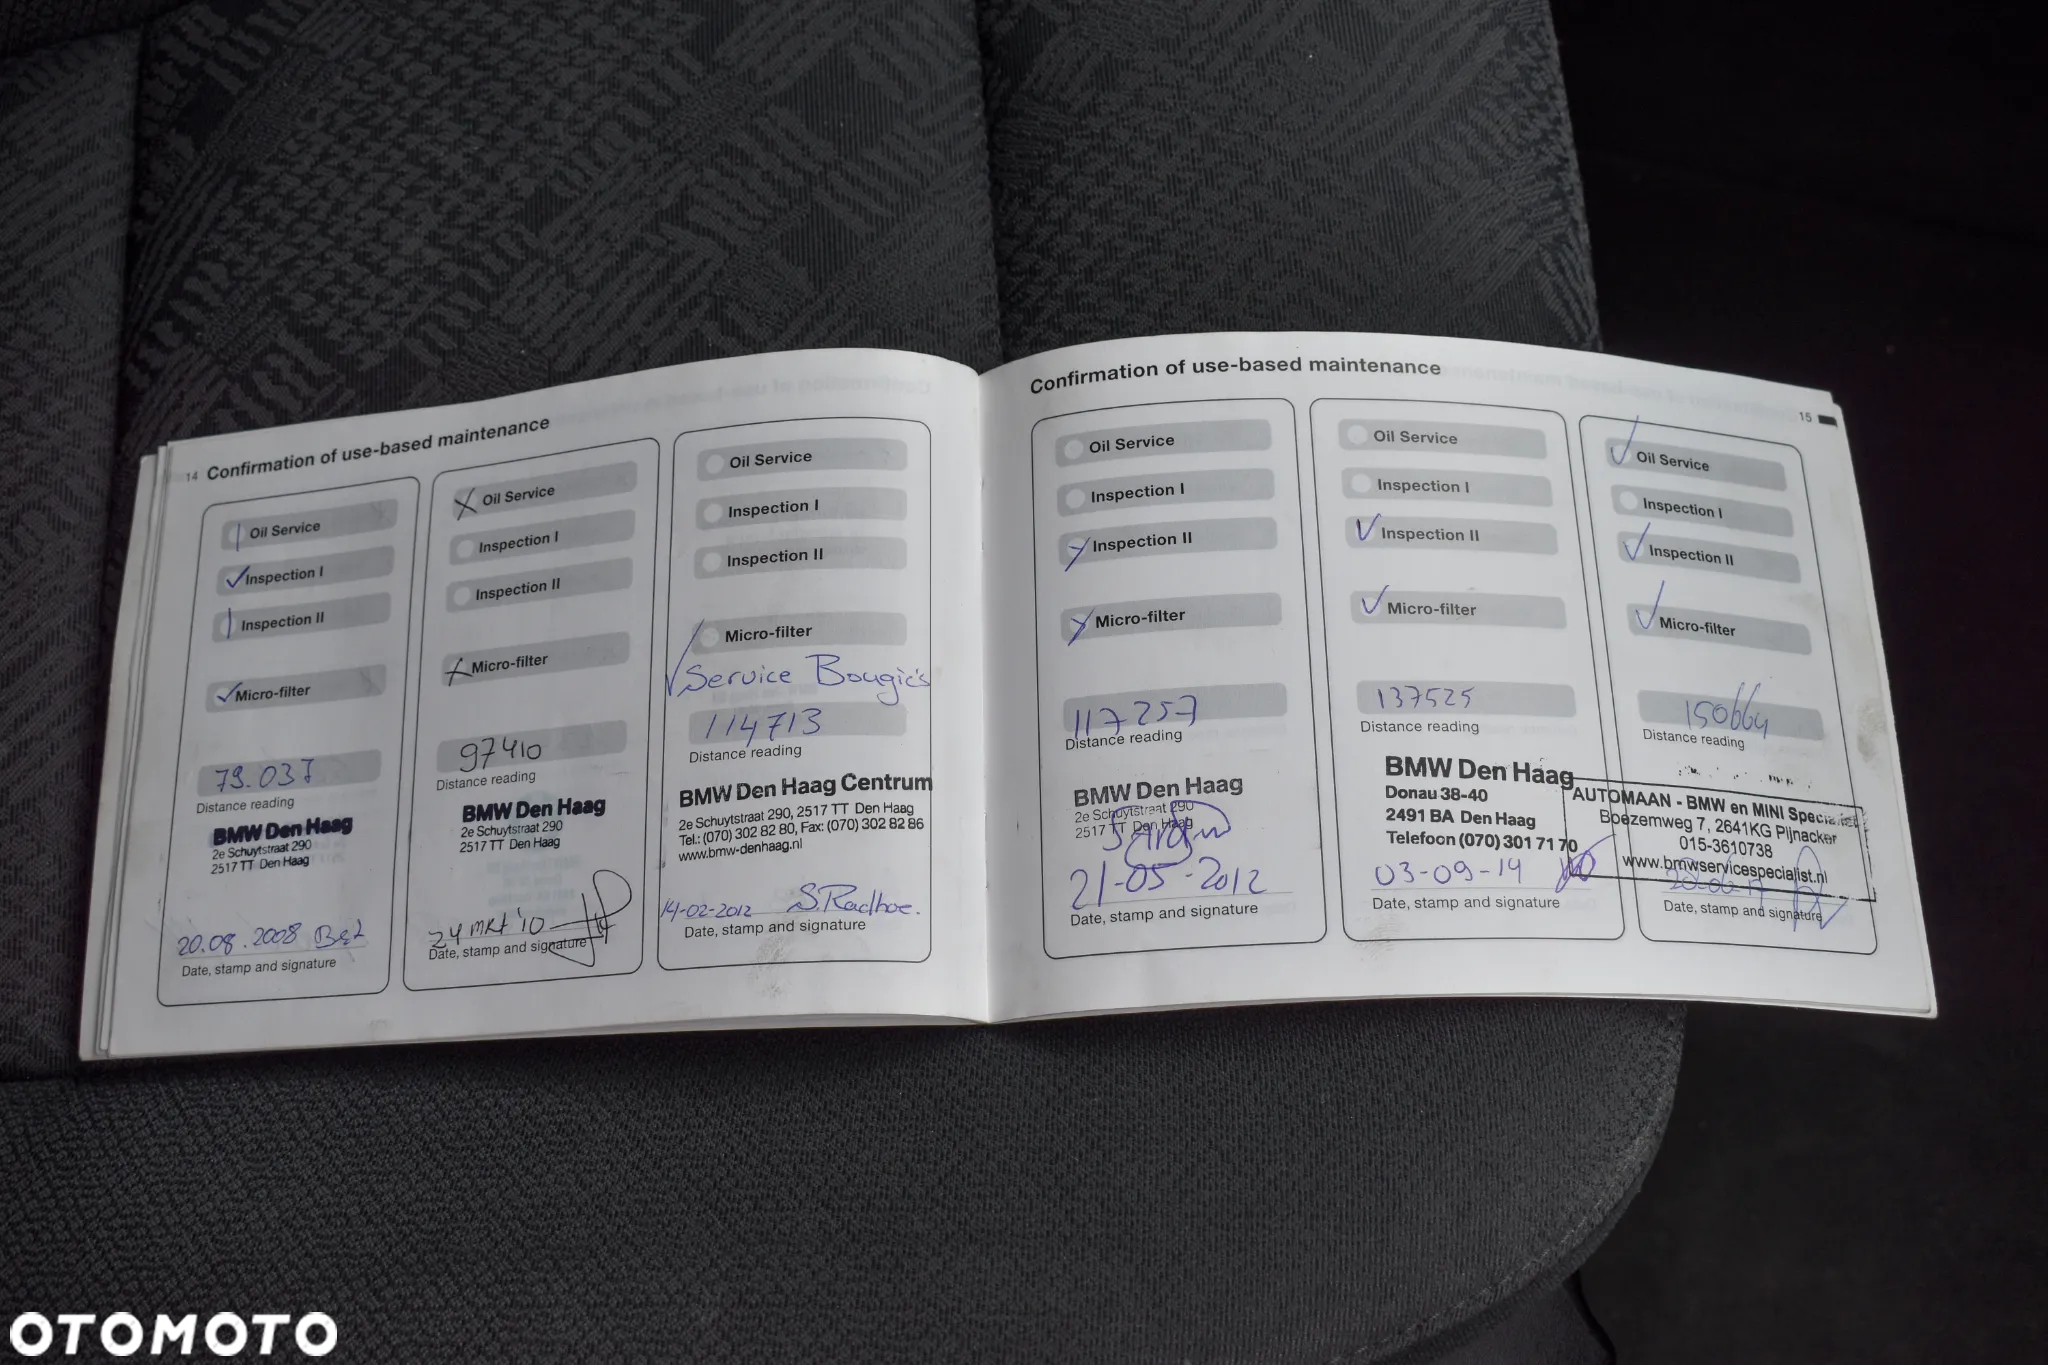 14 Confirmation of use-based maintenance
Oil Service
Inspection I
Inspection II
Micro-filter
79.037
Distance reading
BMW Den Haag
2e Schuytstraat 290
2517 TT Den Haag
20.08.2008
Date, stamp and signature
Oil Service
Inspection I
Inspection II
Micro-filter
97410
Distance reading
BMW Den Haag
2e Schuytstraat 290
2517 TT Den Haag
24 mrt '10
Date, stamp and signature
Oil Service
Inspection I
Inspection II
Micro-filter
Service Bougie's
114713
Distance reading
BMW Den Haag Centrum
2e Schuytstraat 290, 2517 TT Den Haag
Tel.: (070) 302 82 80, Fax: (070) 302 82 86
www.bmw-denhaag.nl
14-02-2012 S.Radhoe.
Date, stamp and signature
Confirmation of use-based maintenance
15
Oil Service
Inspection I
Inspection II
Micro-filter
117257
Distance reading
BMW Den Haag
2e Schuytstraat 290
2517 TT Den Haag
21-05-2012
Date, stamp and signature
Oil Service
Inspection I
Inspection II
Micro-filter
137525
Distance reading
BMW Den Haag
Donau 38-40
2491 BA Den Haag
Telefoon (070) 301 71 70
03-09-14
Date, stamp and signature
Oil Service
Inspection I
Inspection II
Micro-filter
150664
Distance reading
AUTOMAAN - BMW en MINI Specialist
Boezemweg 7, 2641KG Pijnacker
015-3610738
www.bmwservicespecialist.nl
Date, stamp and signature
OTOMOTO